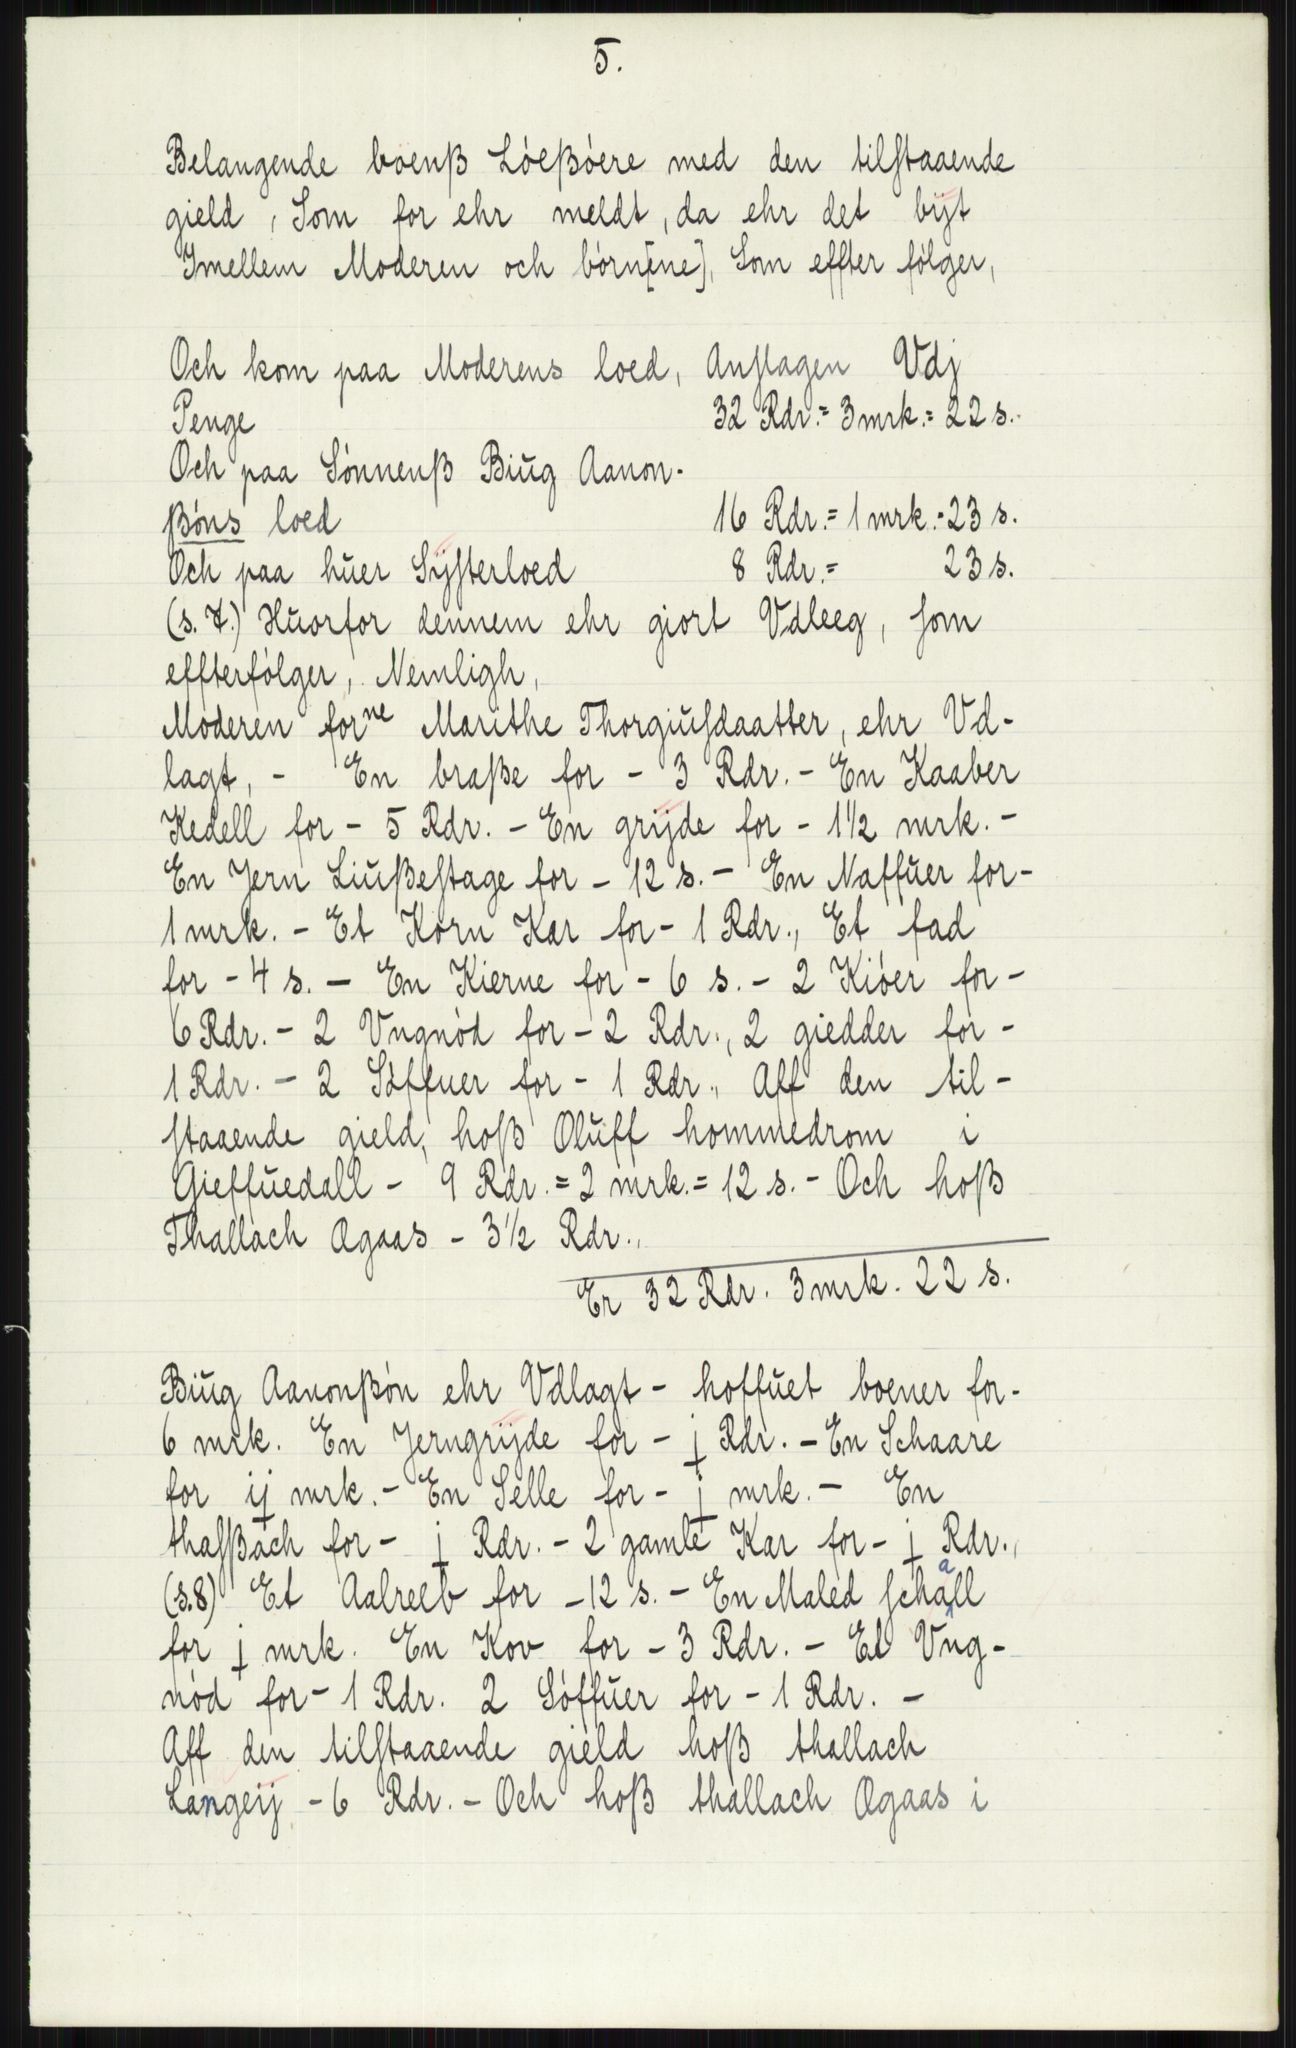 5.
Belangende boenß Lóeßóere med den tilstaaende
gield, Som for ehr meldt, da ehr det bijt
Imellem Moderen och bórn[ne], Som effter fólger,
Och kom paa Moderens loed, Anslagen Vdj
Penge 32 Rdr. = 3 mrk. = 22 s.
Och paa Sónnenß Biug Aanon-
ßóns loed 16 Rdr. = 1 mrk. - 23 s.
Och paa huer Sijsterloed 8 Rdr. = 23 s.
(s. 7.) Huorfor dennem ehr giort Vdleeg, som
effterfólger, Nemligh,
Moderen forne Marithe Thorgiusdaatter, ehr Vd-
lagt, - En braße for - 3 Rdr. - En Kaaber
Kedell for - 5 Rdr. - En grijde for - 1½ mrk. -
En Jern Liußestage for - 12 s. - En Naffuer for -
1 mrk. - Et Korn Kar for - 1 Rdr., Et fad
for - 4 s. - En Kierne for - 6 s. - 2 Kióer for -
6 Rdr. - 2 Vngnód for - 2 Rdr., 2 giedder for -
1 Rdr. - 2 Sóffuer for - 1 Rdr., Aff den til-
staaende gield, hoß Oluff hommedrom i
Gieffuedall - 9 Rdr. = 2 mrk. = 12 s. - Och hoß
Thallach Øgaas - 3½ Rdr.,
Er 32 Rdr. 3 mrk. 22 s.
Biug Aanonßón ehr Vdlagt - hoffuet boener for -
6 mrk. En Jerngrijde for - j Rdr. - En Schaare
for ij mrk. - En Selle for - j mrk. - En
thalßach for - j Rdr. - 2 gamle Kar for - j Rdr.,
(s.8) Et Aalreeb for - 12 s. - En Maled schaall
for j mrk. En Kov for - 3 Rdr. - Et Vng-
nód for - 1 Rdr. 2 Sóffuer for - 1 Rdr. -
Aff den tilstaaende gield hoß thallach
Langeij - 6 Rdr. - Och hoß thallach Øgaas i